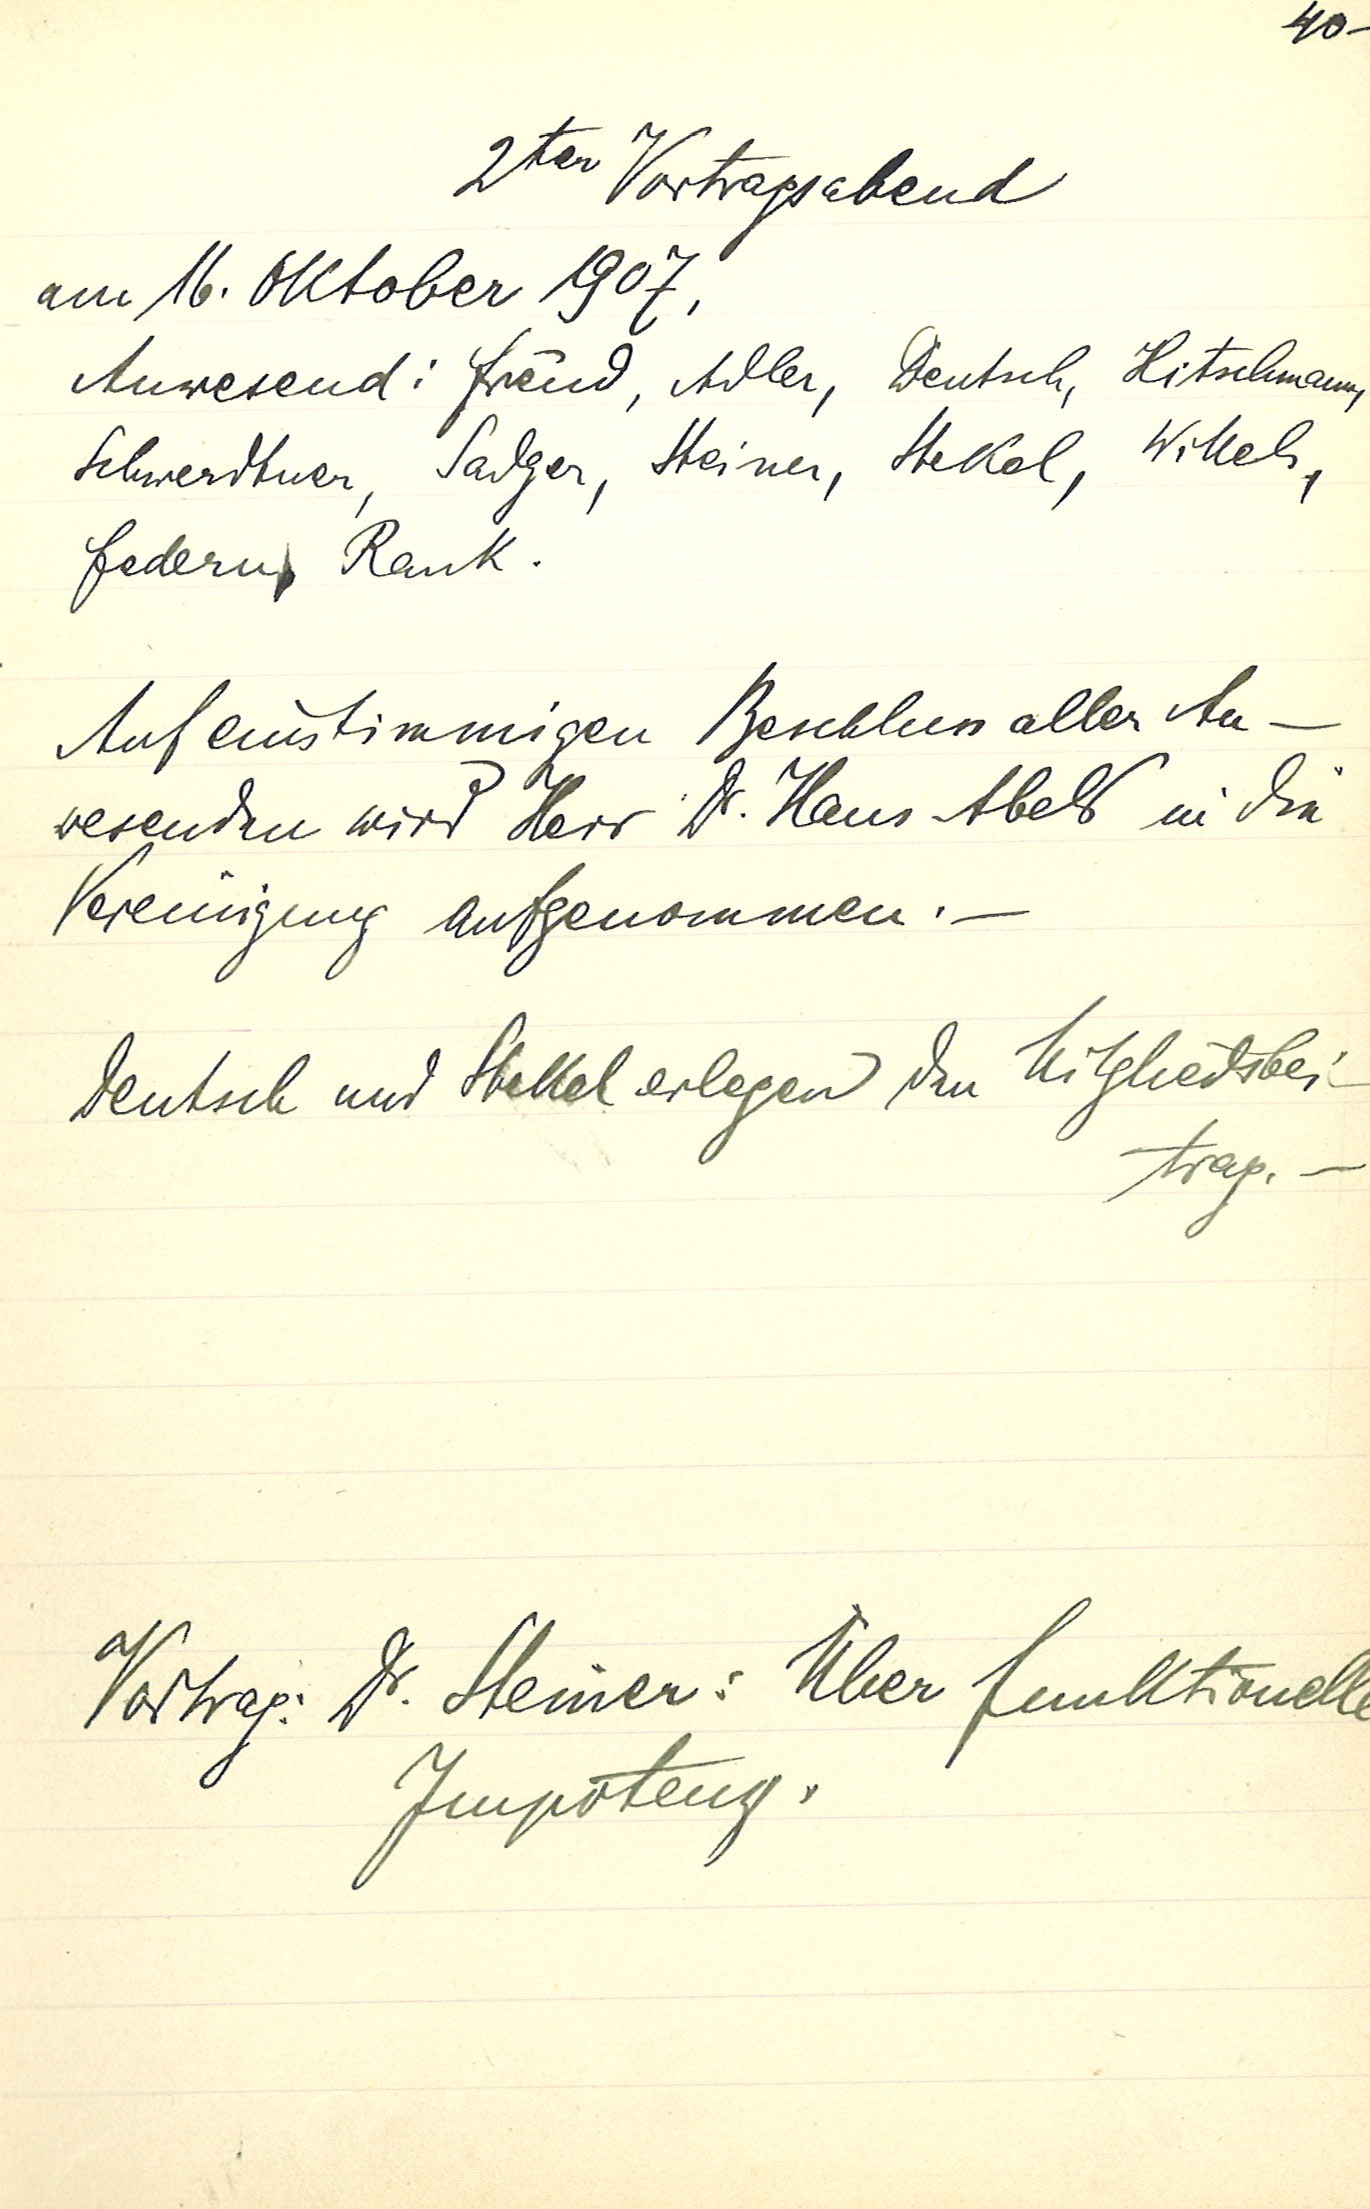 40-
2ter Vortragsabend
am 16. Oktober 1907.
Anwesend: Freud, Adler, Deutsch, Hitschmann,
Schwerdtner, Sadger, Steiner, Stekel, Wittels,
Federn, Rank.
Auf einstimmigen Beschluss aller An-
wesenden wird Herr Dr. Hans Abels in die
Vereinigung aufgenommen. —
Deutsch und Stekel erlegen den Mitgliedsbei-
trag. —
Vortrag: Dr. Steiner: Über funktionelle
Impotenz.